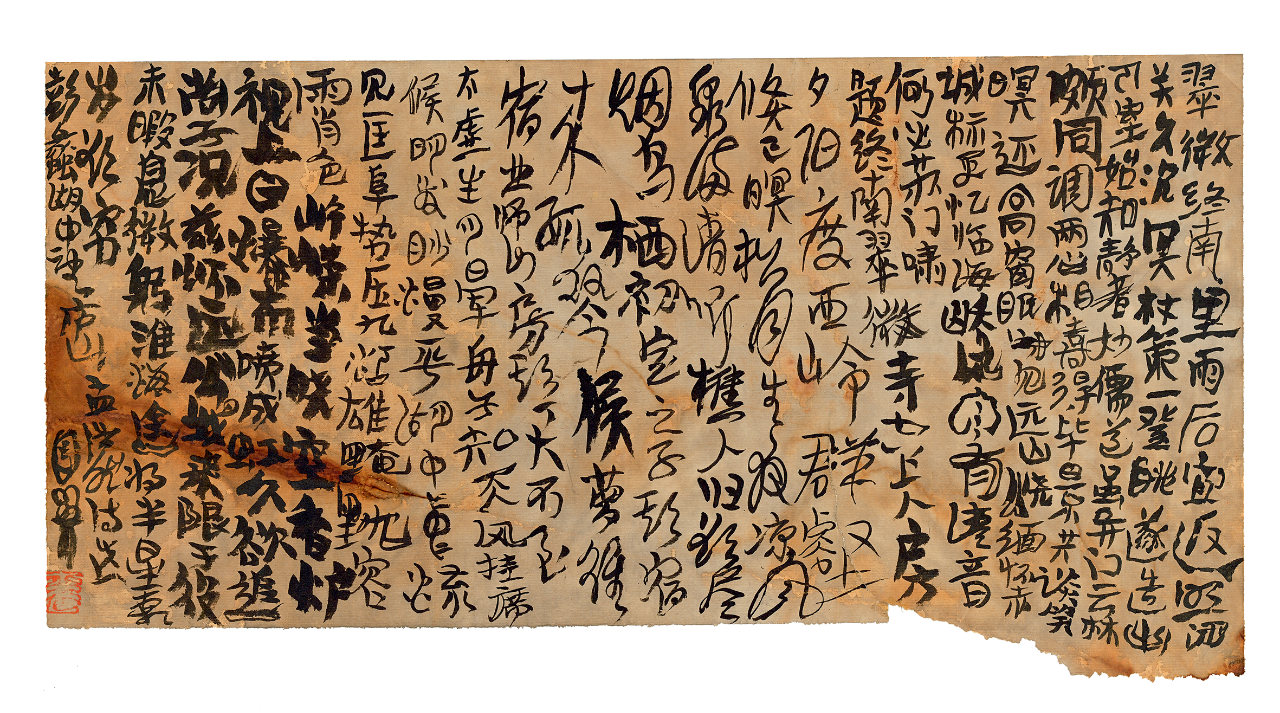 翠微终南里雨后宜返照闭
关久沉冥杖策一登眺遂造幽
人室始知静者妙儒道虽异门云林
颇同调两心相喜得毕景共谈笑
暝还高窗眠时见远山烧缅怀赤
城标更忆临海峤风泉有清音
何必苏门啸
题终南翠微寺空上人房
夕阳度西岭群壑
倏已暝松月生夜凉风
泉满清听樵人归欲尽
烟鸟栖初定之子期宿
来孤琴候萝径
宿业师山房期丁大不至
太虚生月晕舟子知天风挂席
候明发渺漫平湖中中流
见匡阜势压九江雄黤黕容
霁色峥嵘当晓空香炉
初上日瀑布喷成虹久欲追
尚子况兹怀远公我来限于役
未暇息微躬淮海途将半星霜
岁欲穷 孟浩然诗
彭蠡湖中望庐山